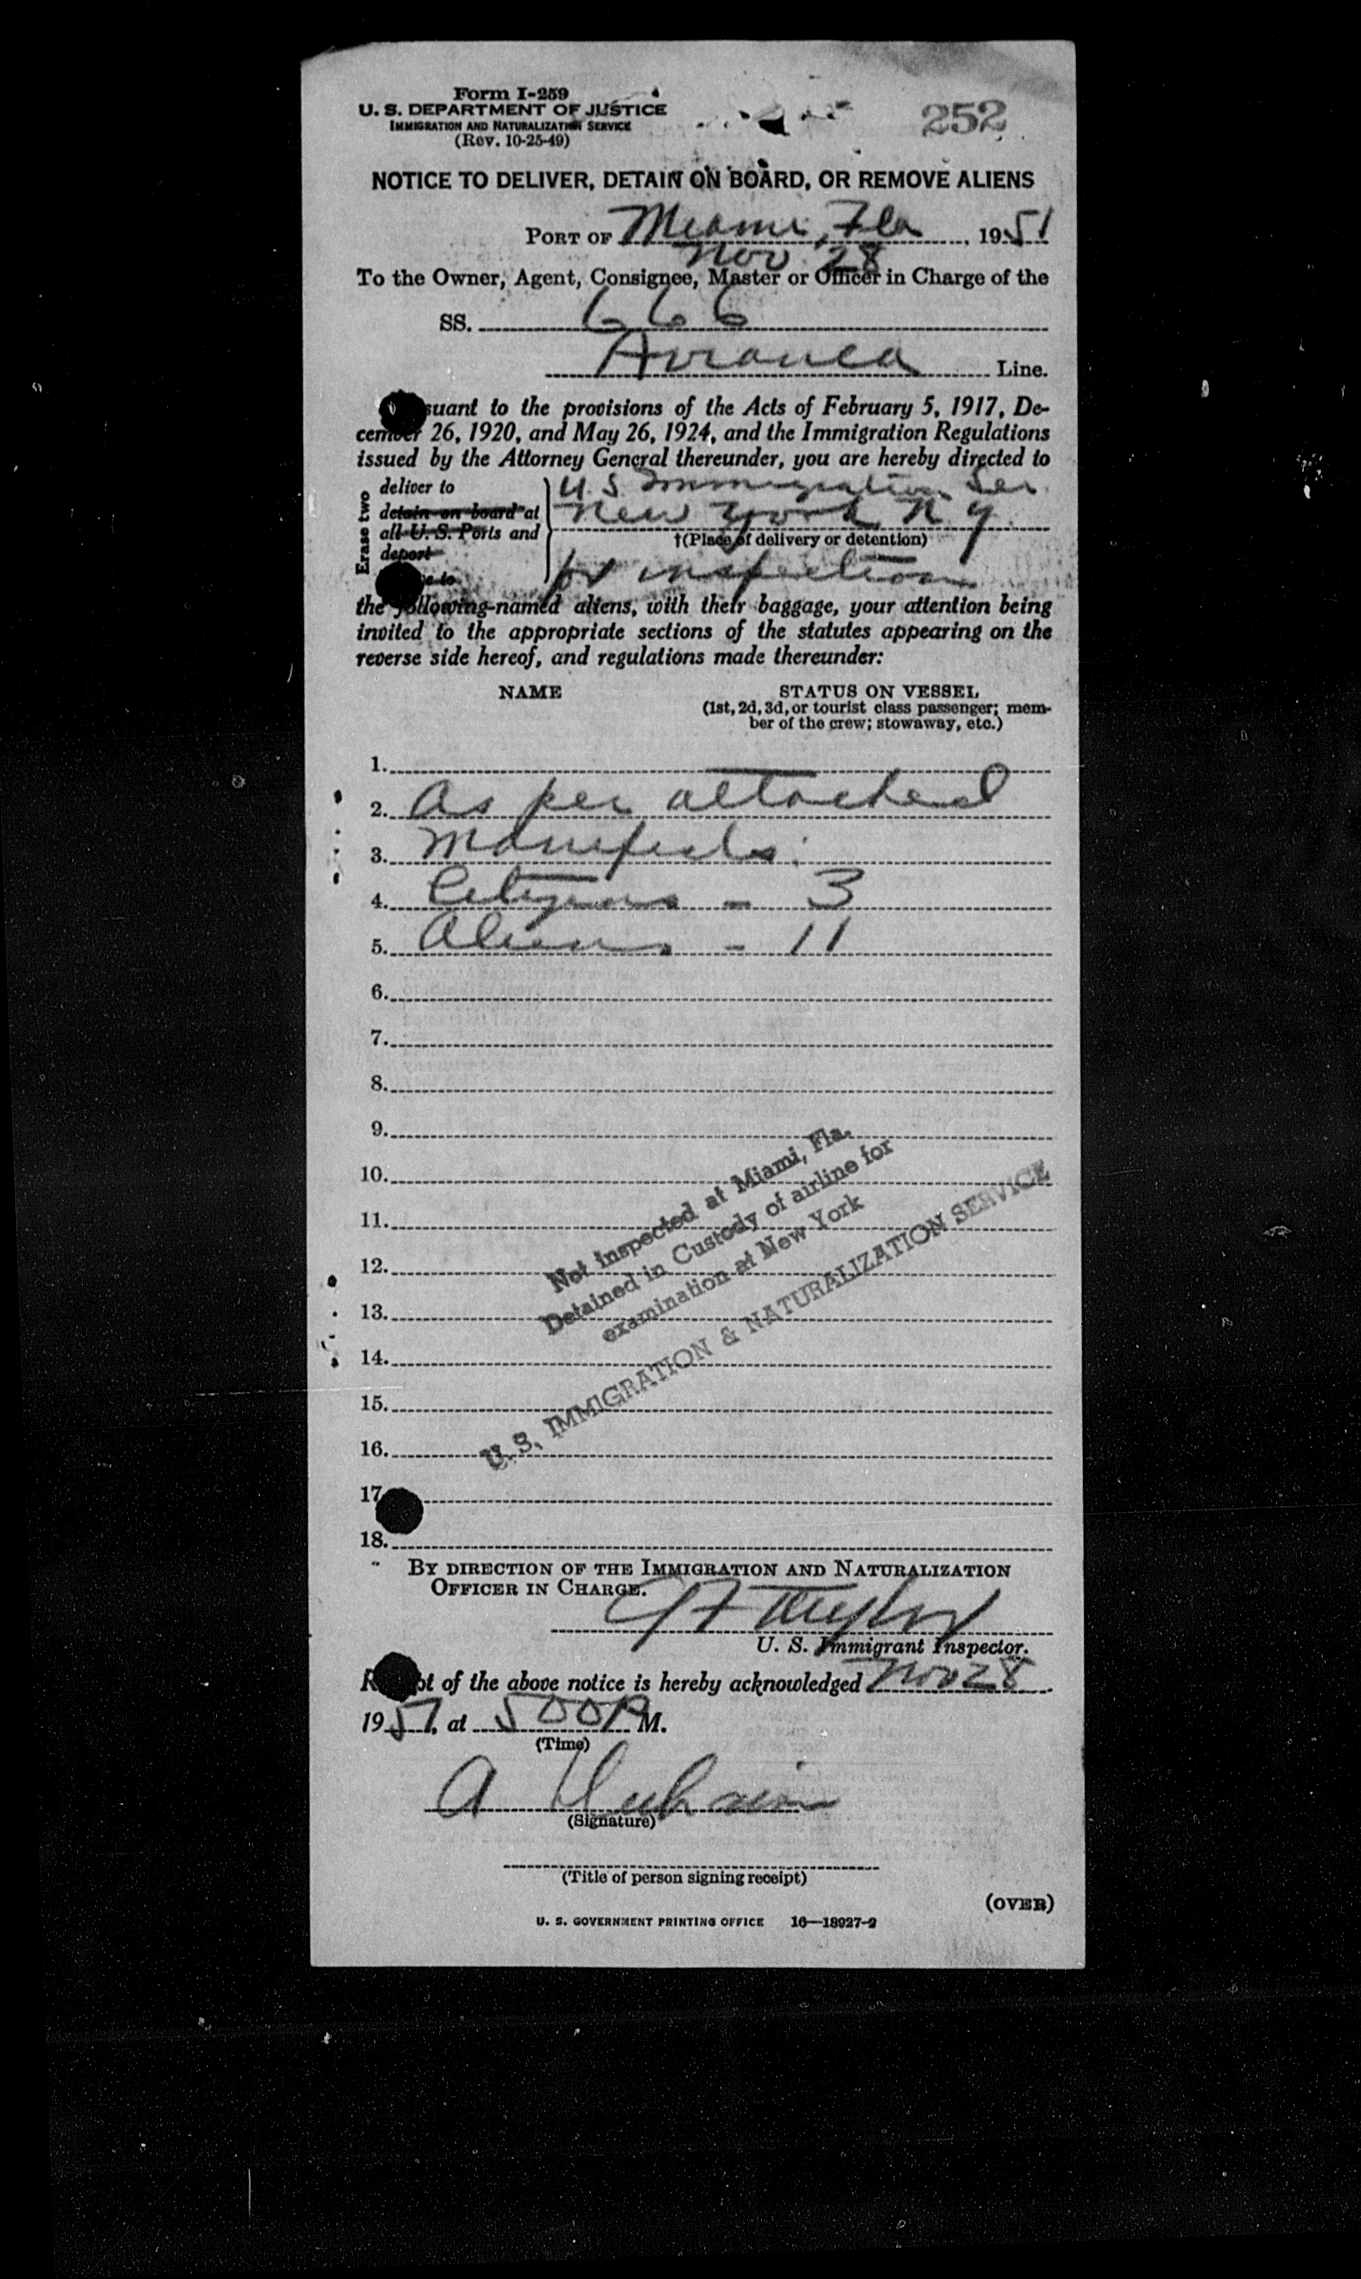 Form I-259
U. S. DEPARTMENT OF JUSTICE
IMMIGRATION AND NATURALIZATION SERVICE
(Rev. 10-25-49)
252
NOTICE TO DELIVER, DETAIN ON BOARD, OR REMOVE ALIENS
PORT OF Miami, Fla, 1951
Nov 28
To the Owner, Agent, Consignee, Master or Officer in Charge of the
SS. 666
Avianca Line.
suant to the provisions of the Acts of February 5, 1917, De-
cember 26, 1920, and May 26, 1924, and the Immigration Regulations
issued by the Attorney General thereunder, you are hereby directed to
Erase two
deliver to
detain on board at
all U. S. Ports and
deport
to
U. S. Immigration Ser.
New York N Y.
†(Place of delivery or detention)
for inspection
the following-named aliens, with their baggage, your attention being
invited to the appropriate sections of the statutes appearing on the
reverse side hereof, and regulations made thereunder:
NAME
STATUS ON VESSEL
(1st, 2d, 3d, or tourist class passenger; mem-
ber of the crew; stowaway, etc.)
1.
2. As per attached
3. Manifests:
4. Citizens - 3
5. Aliens - 11
6.
7.
8.
9.
10.
11.
12.
13.
14.
15.
16.
17
18.
Not inspected at Miami, Fla.
Detained in Custody of airline for
examination at New York
U. S. IMMIGRATION & NATURALIZATION SERVICE
BY DIRECTION OF THE IMMIGRATION AND NATURALIZATION
OFFICER IN CHARGE.
Taylor
U. S. Immigrant Inspector.
R pt of the above notice is hereby acknowledged Nov 28
1951, at 500 P M.
(Time)
A
(Signature)
(Title of person signing receipt)
(OVER)
U. S. GOVERNMENT PRINTING OFFICE 16—18927-2